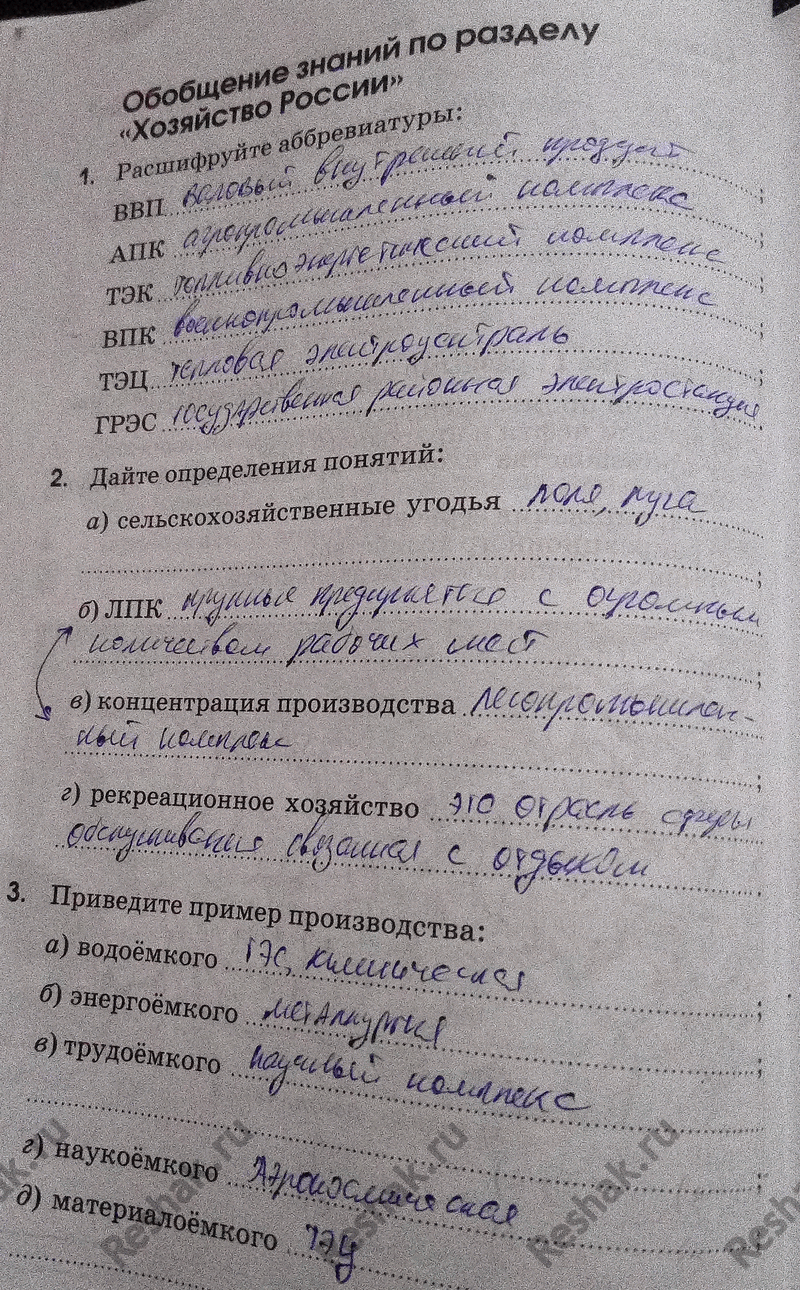 Обобщение знаний по разделу
«Хозяйство России»
1. Расшифруйте аббревиатуры:
ВВП валовый внутренний продукт;
АПК агропромышленный комплекс;
ТЭК топливноэнергетический комплекс;
ВПК военнопромышленный комплекс;
ТЭЦ тепловая электроцентраль;
ГРЭС государственная районная электростанция.
2. Дайте определения понятий:
а) сельскохозяйственные угодья поля, луга
;
б) ЛПК крупные предприятия с огромным
количеством рабочих мест;
в) концентрация производства лесопромышлен-
ный комплекс;
г) рекреационное хозяйство это отрасль сферы
обслуживания связанная с отдыхом.
3. Приведите пример производства:
а) водоёмкого ГЭС, химическая;
б) энергоёмкого металлургия;
в) трудоёмкого научный комплекс
;
г) наукоёмкого Аэрокосмическая;
д) материалоёмкого ТЭЦ
ak.ru
Reshak.ru
Reshak.ru
Reshak.ru
Resha